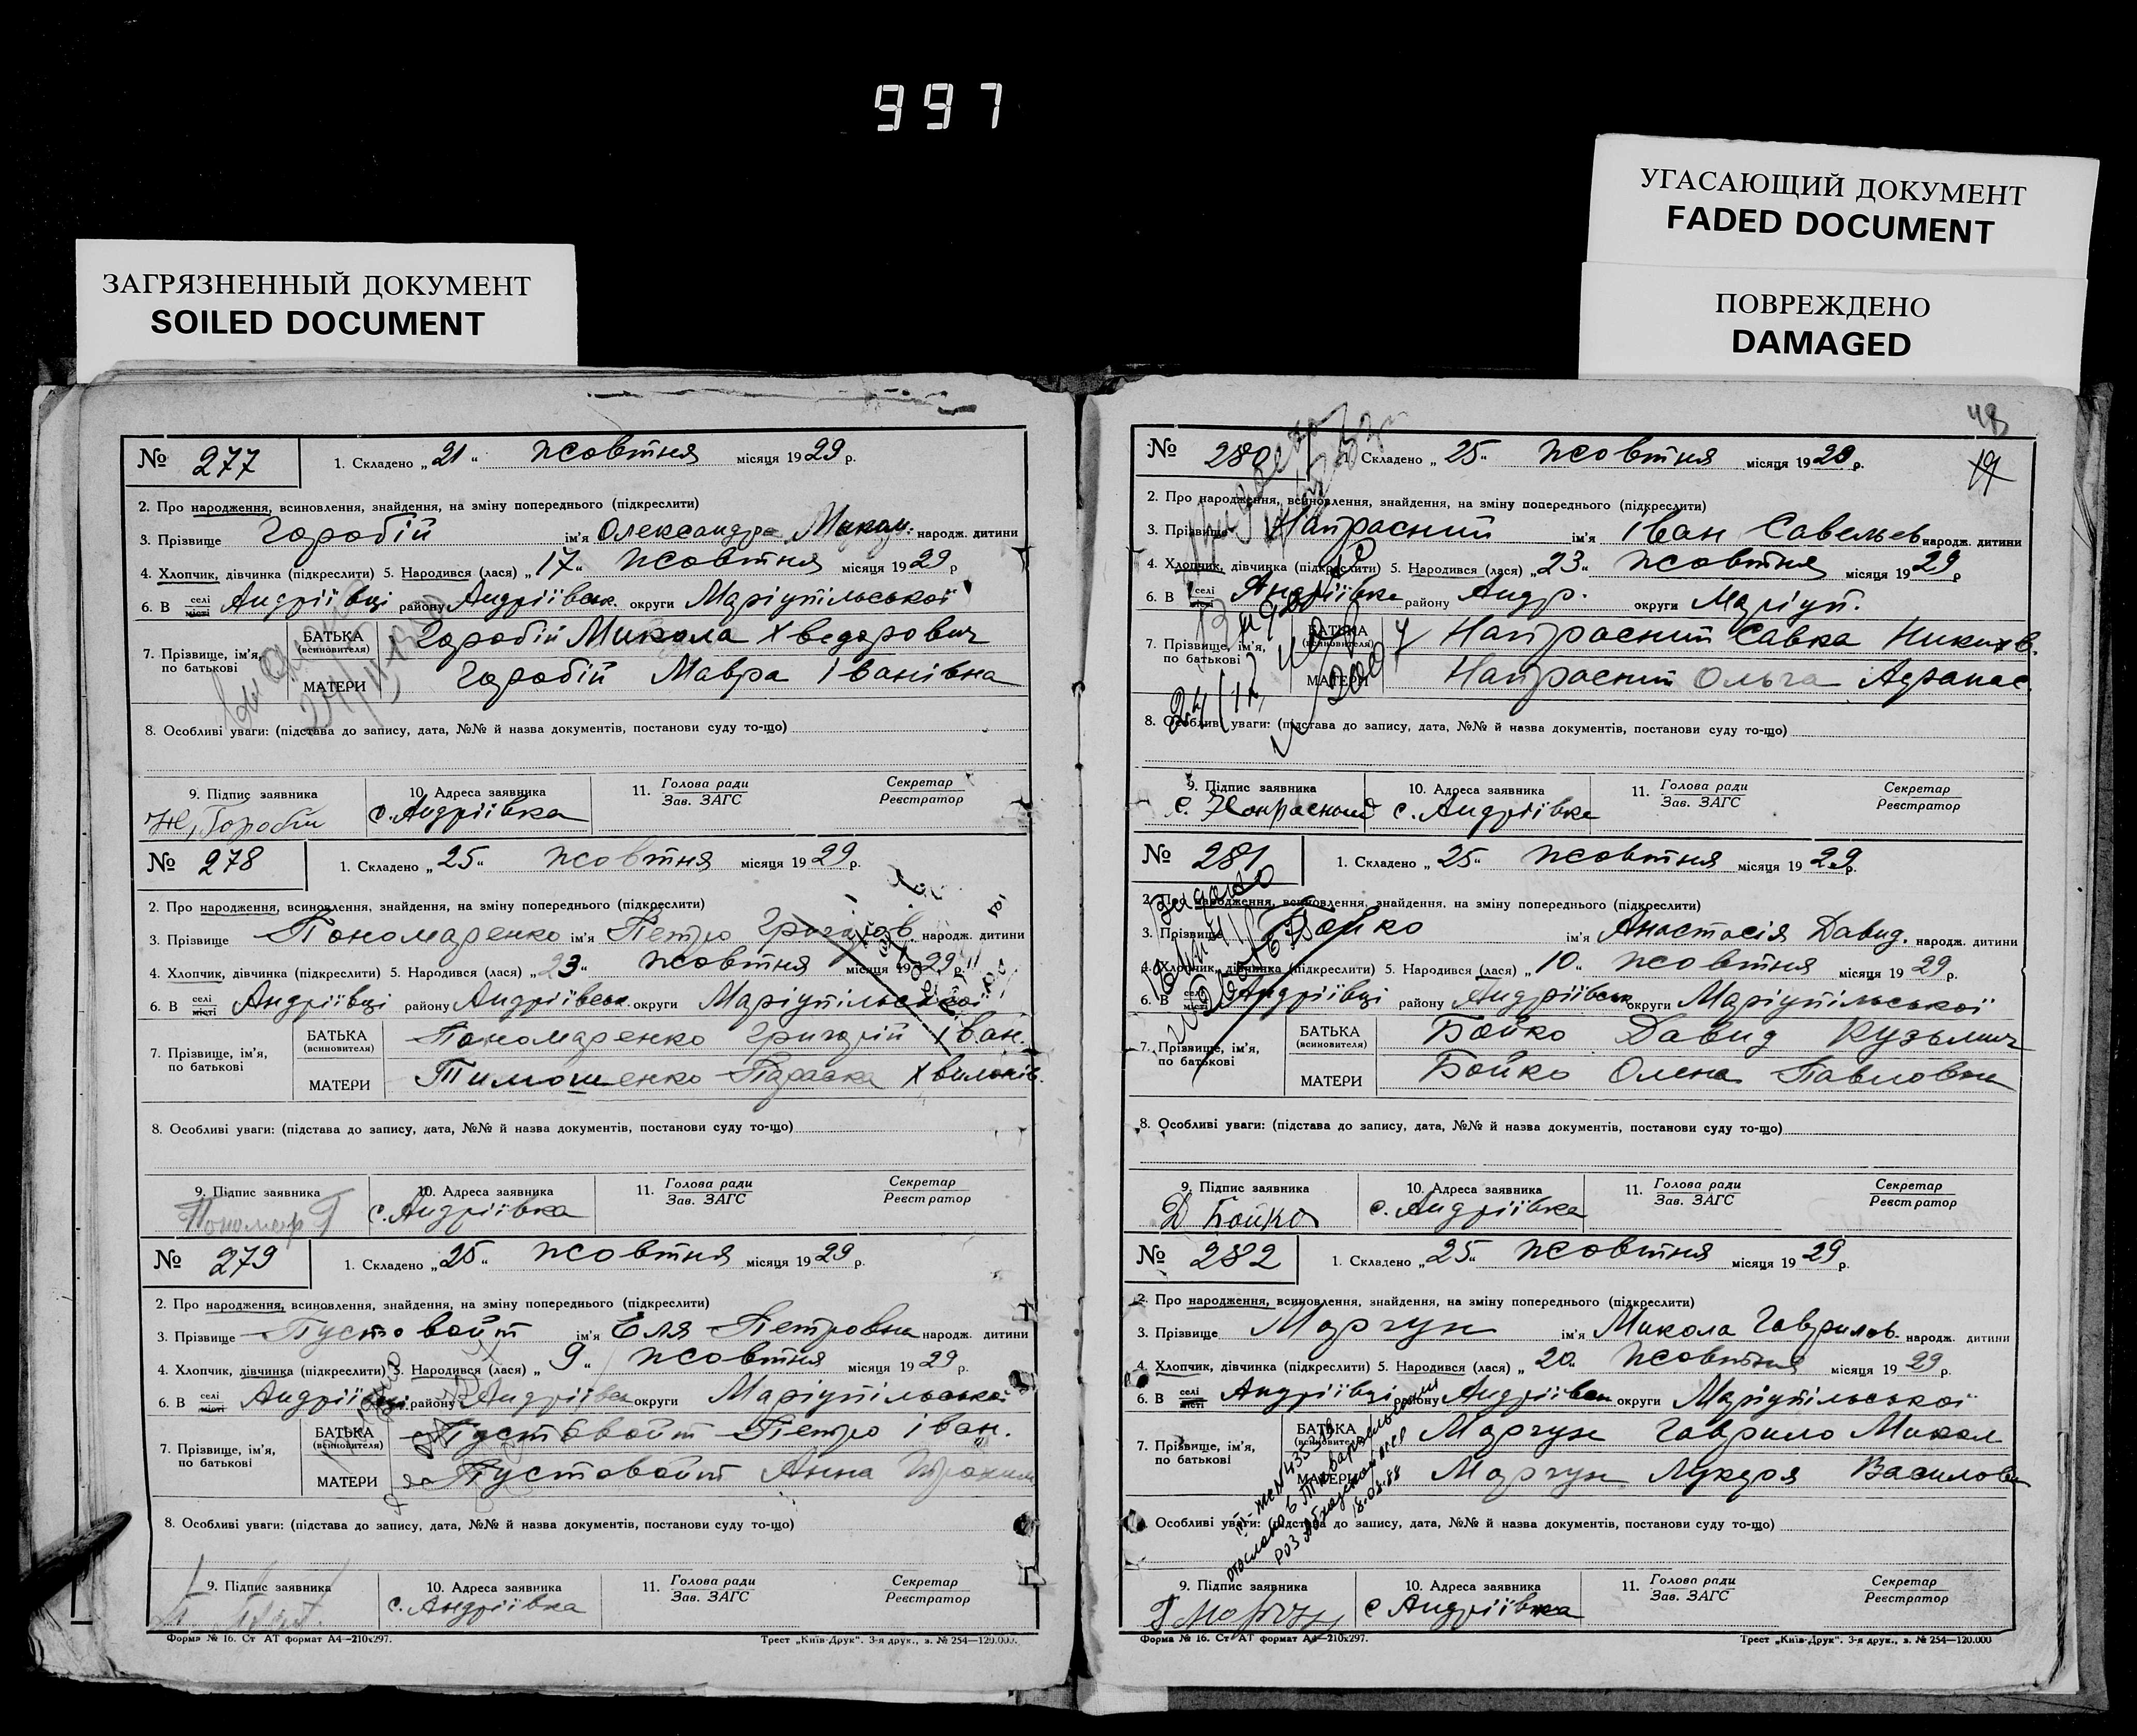 997
УГАСАЮЩИЙ ДОКУМЕНТ
FADED DOCUMENT
ПОВРЕЖДЕНО
DAMAGED
ЗАГРЯЗНЕННЫЙ ДОКУМЕНТ
SOILED DOCUMENT
№ 277 1. Складено „21“ жовтня місяця 1929 р.
2. Про народження, всиновлення, знайдення, на зміну попереднього (підкреслити)
3. Прізвище Горобій ім'я Олександра Микол. народж. дитини
4. Хлопчик, дівчинка (підкреслити) 5. Народився (лася) „17“ жовтня місяця 1929 р
6. В селі місті Андріївці району Андріївськ. округи Маріупільської
7. Прізвище, ім'я, по батькові БАТЬКА (всиновителя) Горобій Микола Хведорович
МАТЕРИ Горобій Мавра Іванівна
8. Особливі уваги: (підстава до запису, дата, №№ й назва документів, постанови суду то-що)
9. Підпис заявника 10. Адреса заявника 11. Голова ради Зав. ЗАГС Секретар Реєстратор
Горобій с. Андріївка
№ 278 1. Складено „25“ жовтня місяця 1929 р.
2. Про народження, всиновлення, знайдення, на зміну попереднього (підкреслити)
3. Прізвище Пономаренко ім'я Петро Григоров. народж. дитини
4. Хлопчик, дівчинка (підкреслити) 5. Народився (лася) „23“ жовтня місяця 1929 р.
6. В селі місті Андріївці району Андріївськ. округи Маріупільської
7. Прізвище, ім'я, по батькові БАТЬКА (всиновителя) Пономаренко Григорій Іван.
МАТЕРИ Тимошенко Параска Хвилонів.
8. Особливі уваги: (підстава до запису, дата, №№ й назва документів, постанови суду то-що)
9. Підпис заявника 10. Адреса заявника 11. Голова ради Зав. ЗАГС Секретар Реєстратор
Пономар Г с. Андріївка
№ 279 1. Складено „25“ жовтня місяця 1929 р.
2. Про народження, всиновлення, знайдення, на зміну попереднього (підкреслити)
3. Прізвище Пустовойт ім'я Еля Петровна народж. дитини
4. Хлопчик, дівчинка (підкреслити) 5. Народився (лася) „9“ жовтня місяця 1929 р.
6. В селі місті Андріївці району Андріївськ округи Маріупільської
7. Прізвище, ім'я, по батькові БАТЬКА (всиновителя) Пустовойт Петро Іван.
МАТЕРИ Пустовойт Анна
8. Особливі уваги: (підстава до запису, дата, №№ й назва документів, постанови суду то-що)
9. Підпис заявника 10. Адреса заявника 11. Голова ради Зав. ЗАГС Секретар Реєстратор
с. Андріївка
Форма № 16. Ст АТ формат А4—210x297. Трест „Київ-Друк“. 3-я друк., з. № 254—120.000.
48
№ 280 1. Складено „25“ жовтня місяця 1929 р.
2. Про народження, всиновлення, знайдення, на зміну попереднього (підкреслити)
3. Прізвище Напрасний ім'я Іван Савельев народж. дитини
4. Хлопчик, дівчинка (підкреслити) 5. Народився (лася) „23“ жовтня місяця 1929 р
6. В селі місті Андріївке району Андр. округи Маріуп.
7. Прізвище, ім'я, по батькові БАТЬКА (всиновителя) Напрасний Савка
МАТЕРИ Напрасний Ольга Афанас.
8. Особливі уваги: (підстава до запису, дата, №№ й назва документів, постанови суду то-що)
9. Підпис заявника 10. Адреса заявника 11. Голова ради Зав. ЗАГС Секретар Реєстратор
С. Напрасний с. Андріївка
№ 281 1. Складено „25“ жовтня місяця 1929 р.
2. Про народження, всиновлення, знайдення, на зміну попереднього (підкреслити)
3. Прізвище Бойко ім'я Анастасія Давид. народж. дитини
4. Хлопчик, дівчинка (підкреслити) 5. Народився (лася) „10“ жовтня місяця 1929 р.
6. В селі місті Андріївці району Андріївськ округи Маріупільської
7. Прізвище, ім'я, по батькові БАТЬКА (всиновителя) Бойко Давид Кузьмич
МАТЕРИ Бойко Олена Павловна
8. Особливі уваги: (підстава до запису, дата, №№ й назва документів, постанови суду то-що)
9. Підпис заявника 10. Адреса заявника 11. Голова ради Зав. ЗАГС Секретар Реєстратор
Д Бойко с. Андріївка
№ 282 1. Складено „25“ жовтня місяця 1929 р.
2. Про народження, всиновлення, знайдення, на зміну попереднього (підкреслити)
3. Прізвище Моргун ім'я Микола Гаврилов. народж. дитини
4. Хлопчик, дівчинка (підкреслити) 5. Народився (лася) „20“ жовтня місяця 1929 р.
6. В селі місті Андріївці району Андріївськ округи Маріупільської
7. Прізвище, ім'я, по батькові БАТЬКА (всиновителя) Моргун Гаврило Микол
МАТЕРИ Моргун Лукеря Василовн
8. Особливі уваги: (підстава до запису, дата, №№ й назва документів, постанови суду то-що)
18.03.88
9. Підпис заявника 10. Адреса заявника 11. Голова ради Зав. ЗАГС Секретар Реєстратор
Г Моргун с Андріївка
Форма № 16. Ст АТ формат А4—210x297. Трест „Київ-Друк“. 3-я друк., з. № 254—120.000